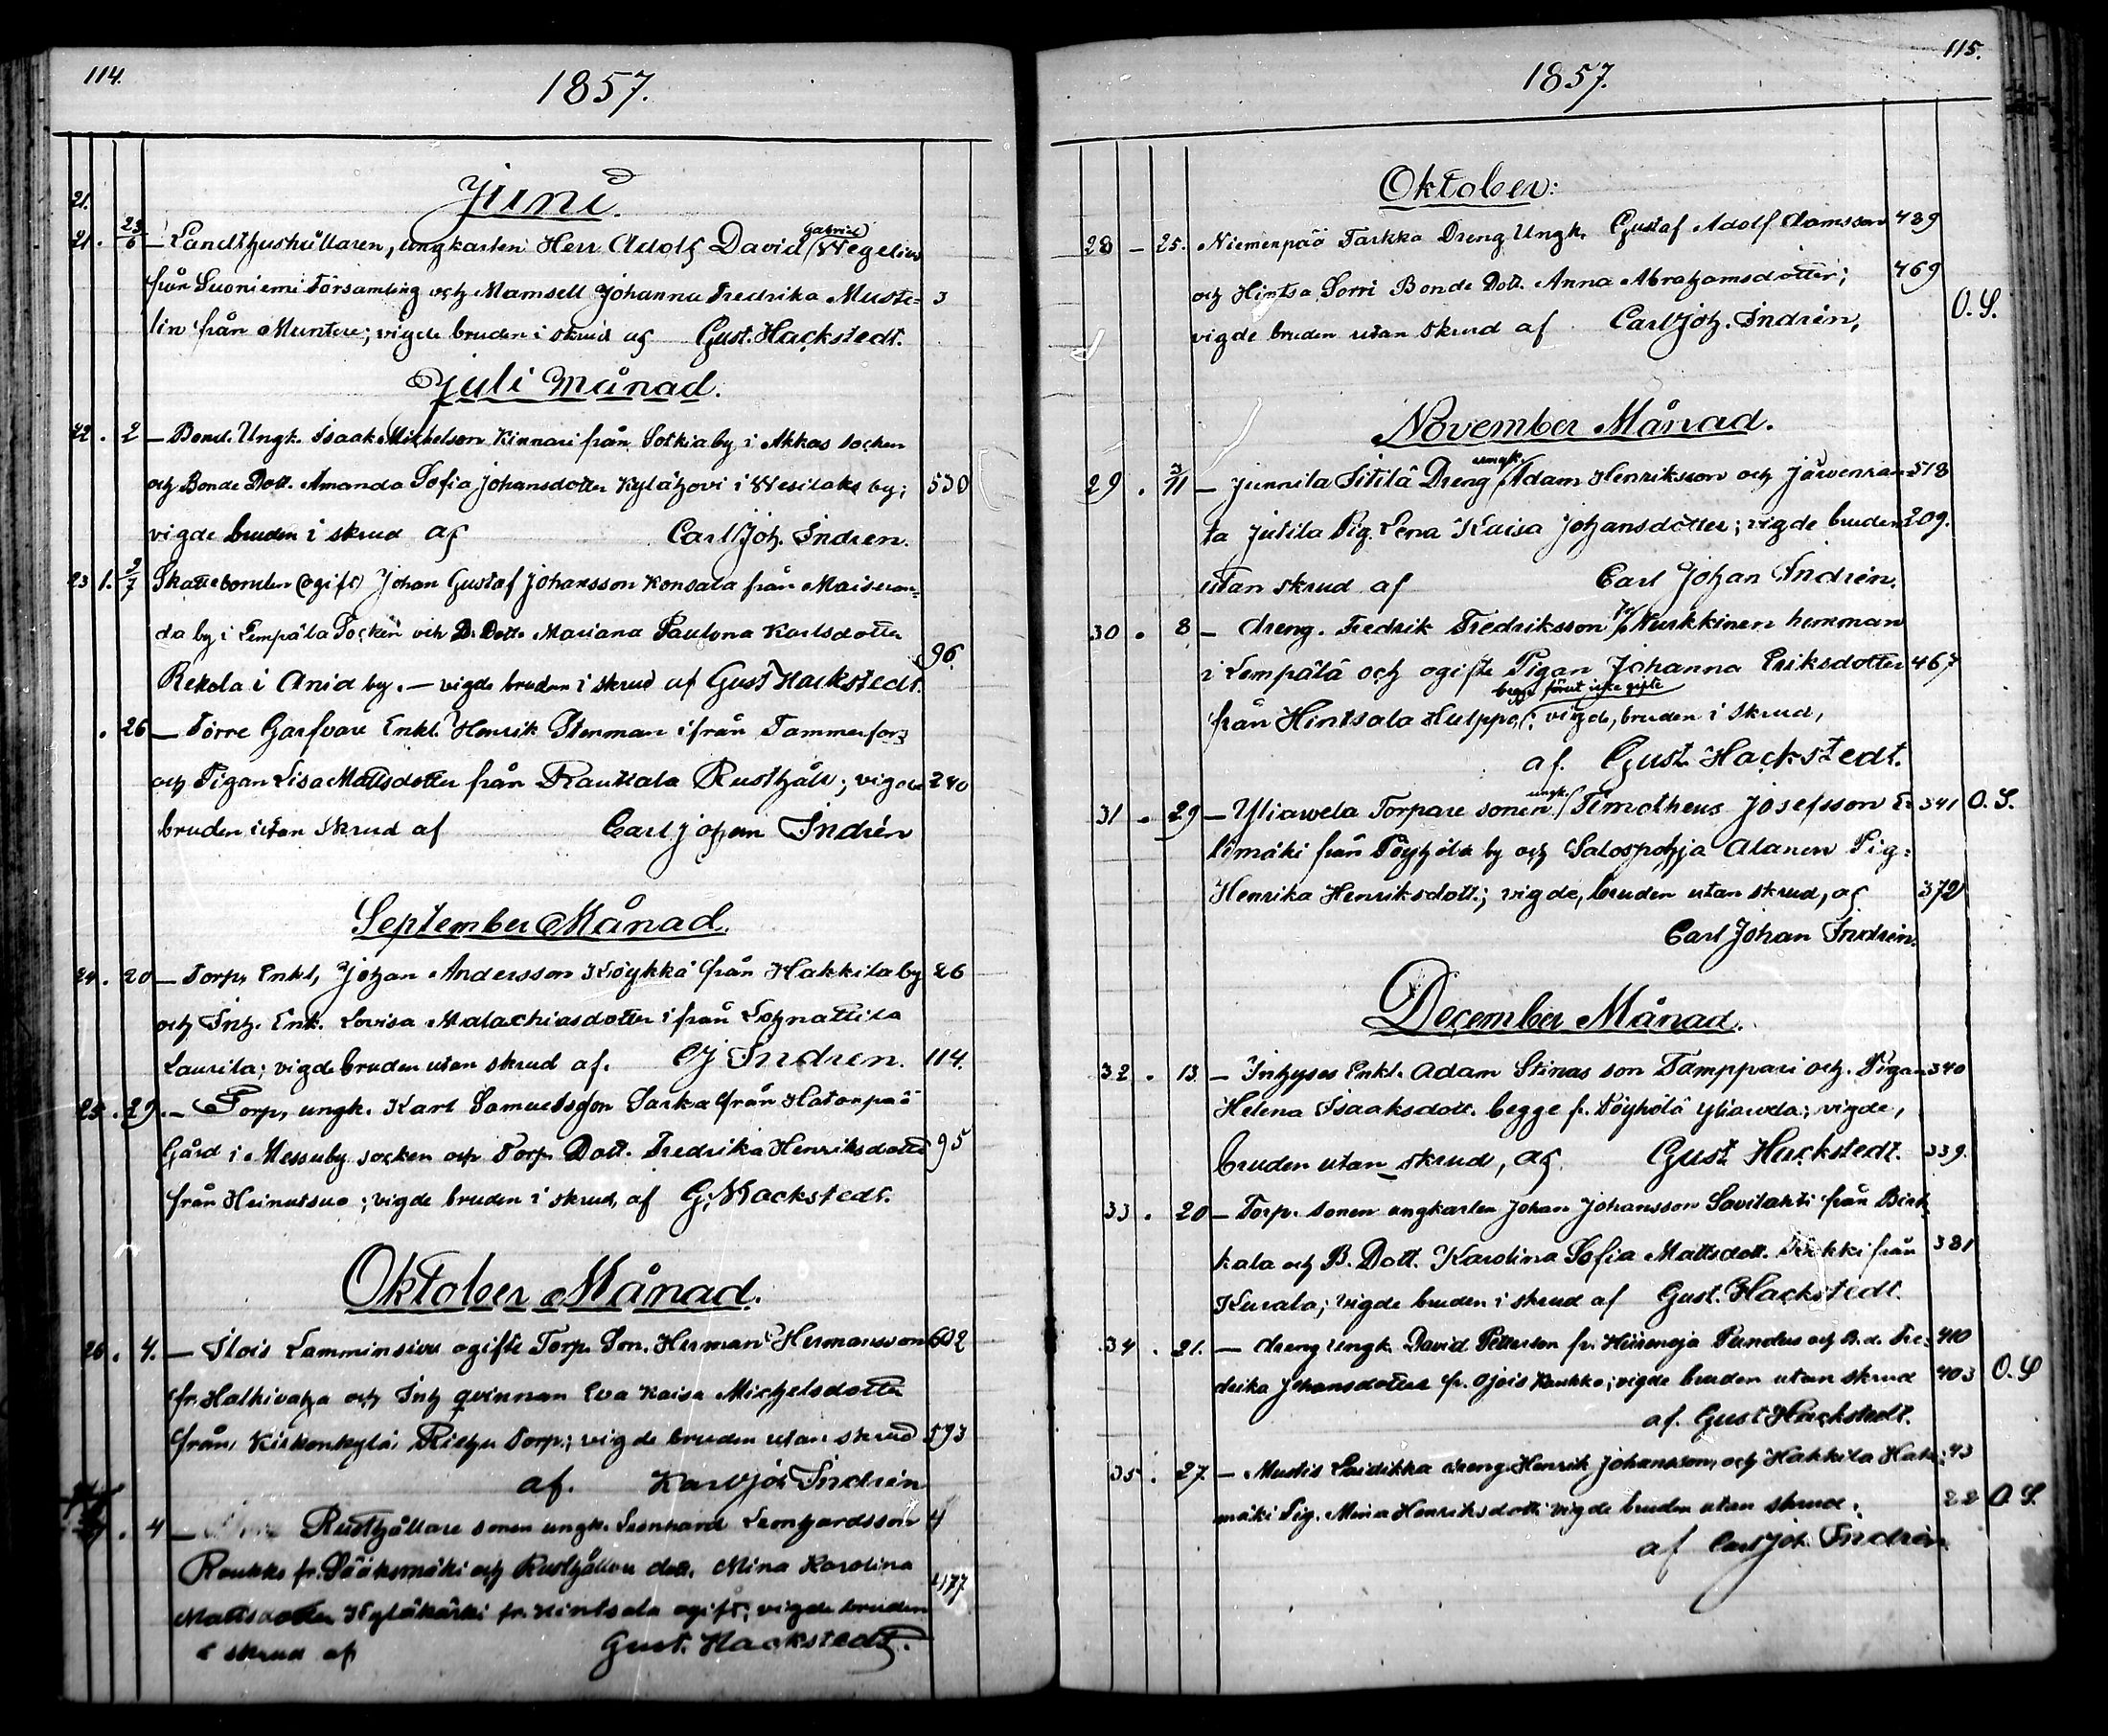 114.
1857.
Juni.
21.
21. 23/6 — Landthushållaren, ungkarlen Herr Adolf David Gabriel Wegelius
från Suoniemi Församling och Mamsell Johanna Fredrika Muste= 3
lin från Muntere; vigde bruden i skrud af Gust. Hackstedt.
Juli Månad.
22. 2 — Bond. Ungk. Isaak Michelson Kinnari från Sotkia by i Akkas socken
och Bonde Dott. Amanda Sofia Johansdotter Kylähovi i Wesilaks by; 530
vigde bruden i skrud af Carl Joh. Indren.
23 1. 2/7 Skattebonden (ogift) Johan Gustaf Johansson Konsala från Maisean=
da by i Lempäla Socken och B. Dott. Mariana Paulina Karlsdotter
Rekola i Anid by. — vigde bruden i skrud af Gust Hackstedt. 96.
. 26 — Förre Garfvare Enkl. Henrik Stenman ifrån Tammerfors
och Pigan Lisa Mattsdotter från Rautiala Rusthåll; vigde 240
bruden utan skrud af Carl Johan Indrén
September Månad.
24. 20 — Torp. Enkl, Johan Andersson Köykkä från Hakkila by 26
och Inh. Enk. Lovisa Malachiasdotter ifrån Lohnattila
Laurila; vigde bruden utan skrud af. CJ Indren. 114.
25. 29. — Torp, ungk. Karl Samuelsson Sarka från Hatanpää
Gård i Messuby socken och Torp. Dott. Fredrika Henriksdotter 95
från Heinutsuo; vigde bruden i skrud, af G. Hackstedt.
Oktober Månad.
26. 4. — Ilois Lamminsivu ogifte Torp. Son. Herman Hermansson 602
fr. Halkivaha och Inh qvinnan Eva Kaisa Michelsdotter
från Kirkonkylä Torp.; vigde bruden utan skrud 593
af. Karl Joh Indrén
27. 4 — Rusthållare sonen ungk. Leonhard Leonhardsson 4
Roukko fr. Sääksmäki och Rusthållare dott. Mina Karolina
Mattsdotter Kyläkärki fr. Hintsala ogift; vigde bruden 477
i skrud af Gust. Hackstedt.
115.
1857.
Oktober:
28 — 25. Niemenpää Tarkka Dreng Ungk. Gustaf Adolf Adamsson 489
och Hintsa Sorri Bonde Dott. Anna Abrahamsdotter; 469
vigde bruden utan skrud af Carl Joh. Indrén, O. S.
November Månad.
29. 3/11 — Junnila Sitilä Dreng ungk. Adam Henriksson och Järvenran 518
ta Jutila Pig. Lena Kaisa Johansdotter; vigde bruden 209.
utan skrud af Carl Johan Indrén.
30. 8 — dreng. Fredrik Fredriksson fr Nurkkinen hemman
i Lempälä och ogifte Pigan Johanna Eriksdotter 467
från Hintsala Hulppo, begge förut icke gifte; vigde, bruden i skrud,
af. Gust. Hackstedt.
31. 29 — Yliawela Torpare sonen ungk. Timotheus Josefsson 341 O. S.
limäki från Pöyhölä by och Salospohja Alanen Pig=
Henrika Henriksdott.; vigde, bruden utan skrud, af 372
Carl Johan Indrén.
December Månad.
32. 13. — Inhyses Enkl. Adam Stinas son Tamppari och Pigan 340
Helena Isaaksdott. begge f. Pöyhölä Yliawela; vigde,
bruden utan skrud, af Gust Hackstedt. 339.
33. 20 — Torp. sonen ungkarlen Johan Johansson Savilahti från Birk
kala och B. Dott. Karolina Sofia Mattsdott. från 381
Kurala; vigde bruden i skrud af Gust. Hackstedt.
34. 21. — dreng Ungk. David Petterson fr. Hiirenoja Pundus och B. d. Fre= 410
drika Johansdotter fr. Ojois Kaukko; vigde bruden utan skrud 403 O. S
af. Gust Hackstedt.
35. 27. — Mustis Laidikka dreng Henrik Johansson, och Hakkila Haka= 43
mäki Pig. Mina Henriksdott. vigde bruden utan skrud. 22 O. S.
af Carl Joh. Indrén